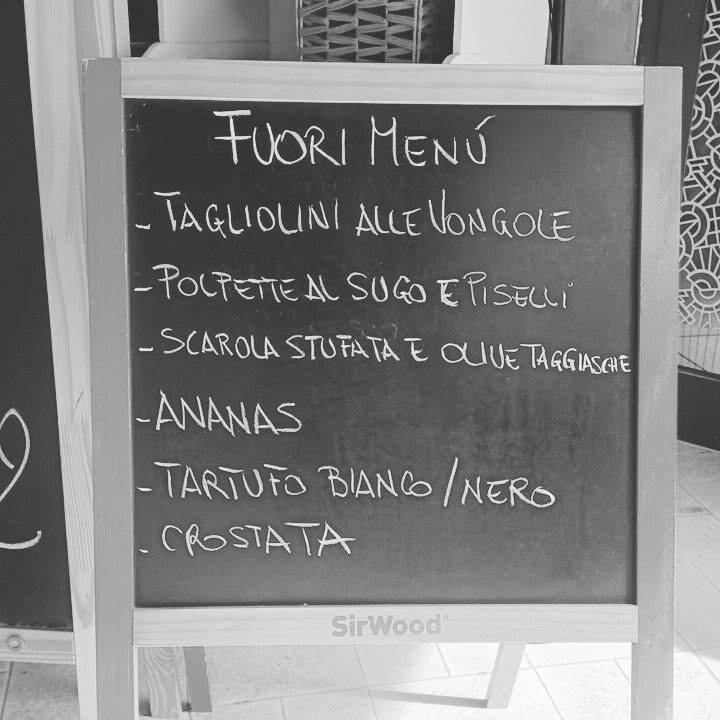 FUORI MENÚ
- TAGLIOLINI ALLE VONGOLE
- POLPETTE AL SUGO E PISELLI
- SCAROLA STUFATA E OLIVE TAGGIASCHE
- ANANAS
- TARTUFO BIANCO/NERO
- CROSTATA
SirWood®